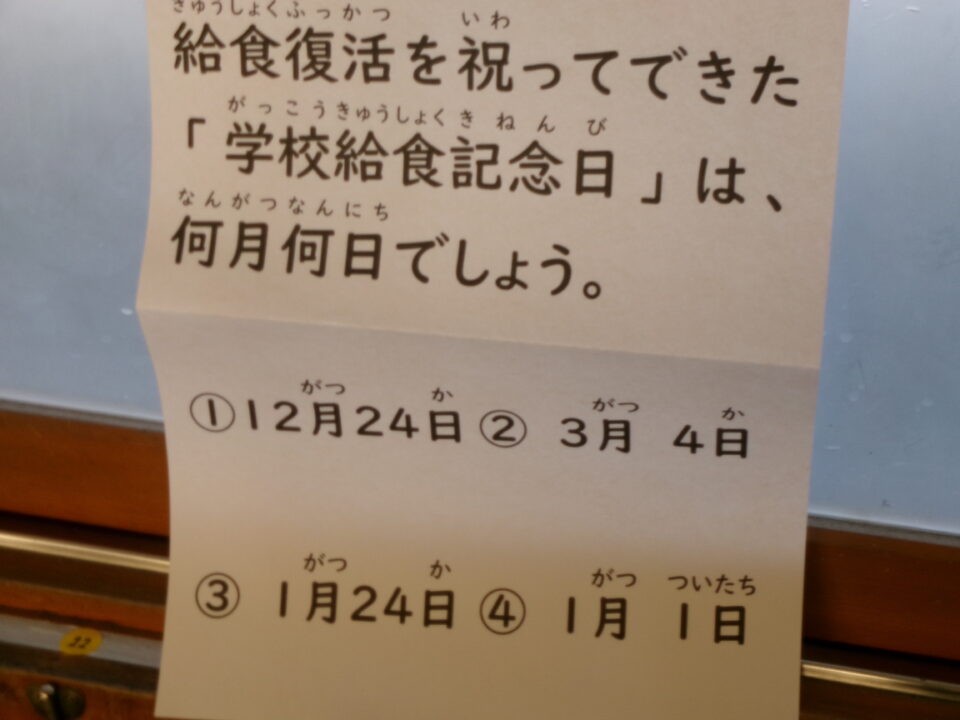 きゅうしょくふっかつ いわ
給食復活を祝ってできた
がっこうきゅうしょく き ねん び
「学校給食記念日」は、
なんがつなんにち
何月何日でしょう。
がつ か がつ か
①12月24日 ② 3月 4日
がつ か がつ ついたち
③ 1月24日 ④ 1月 1日
22